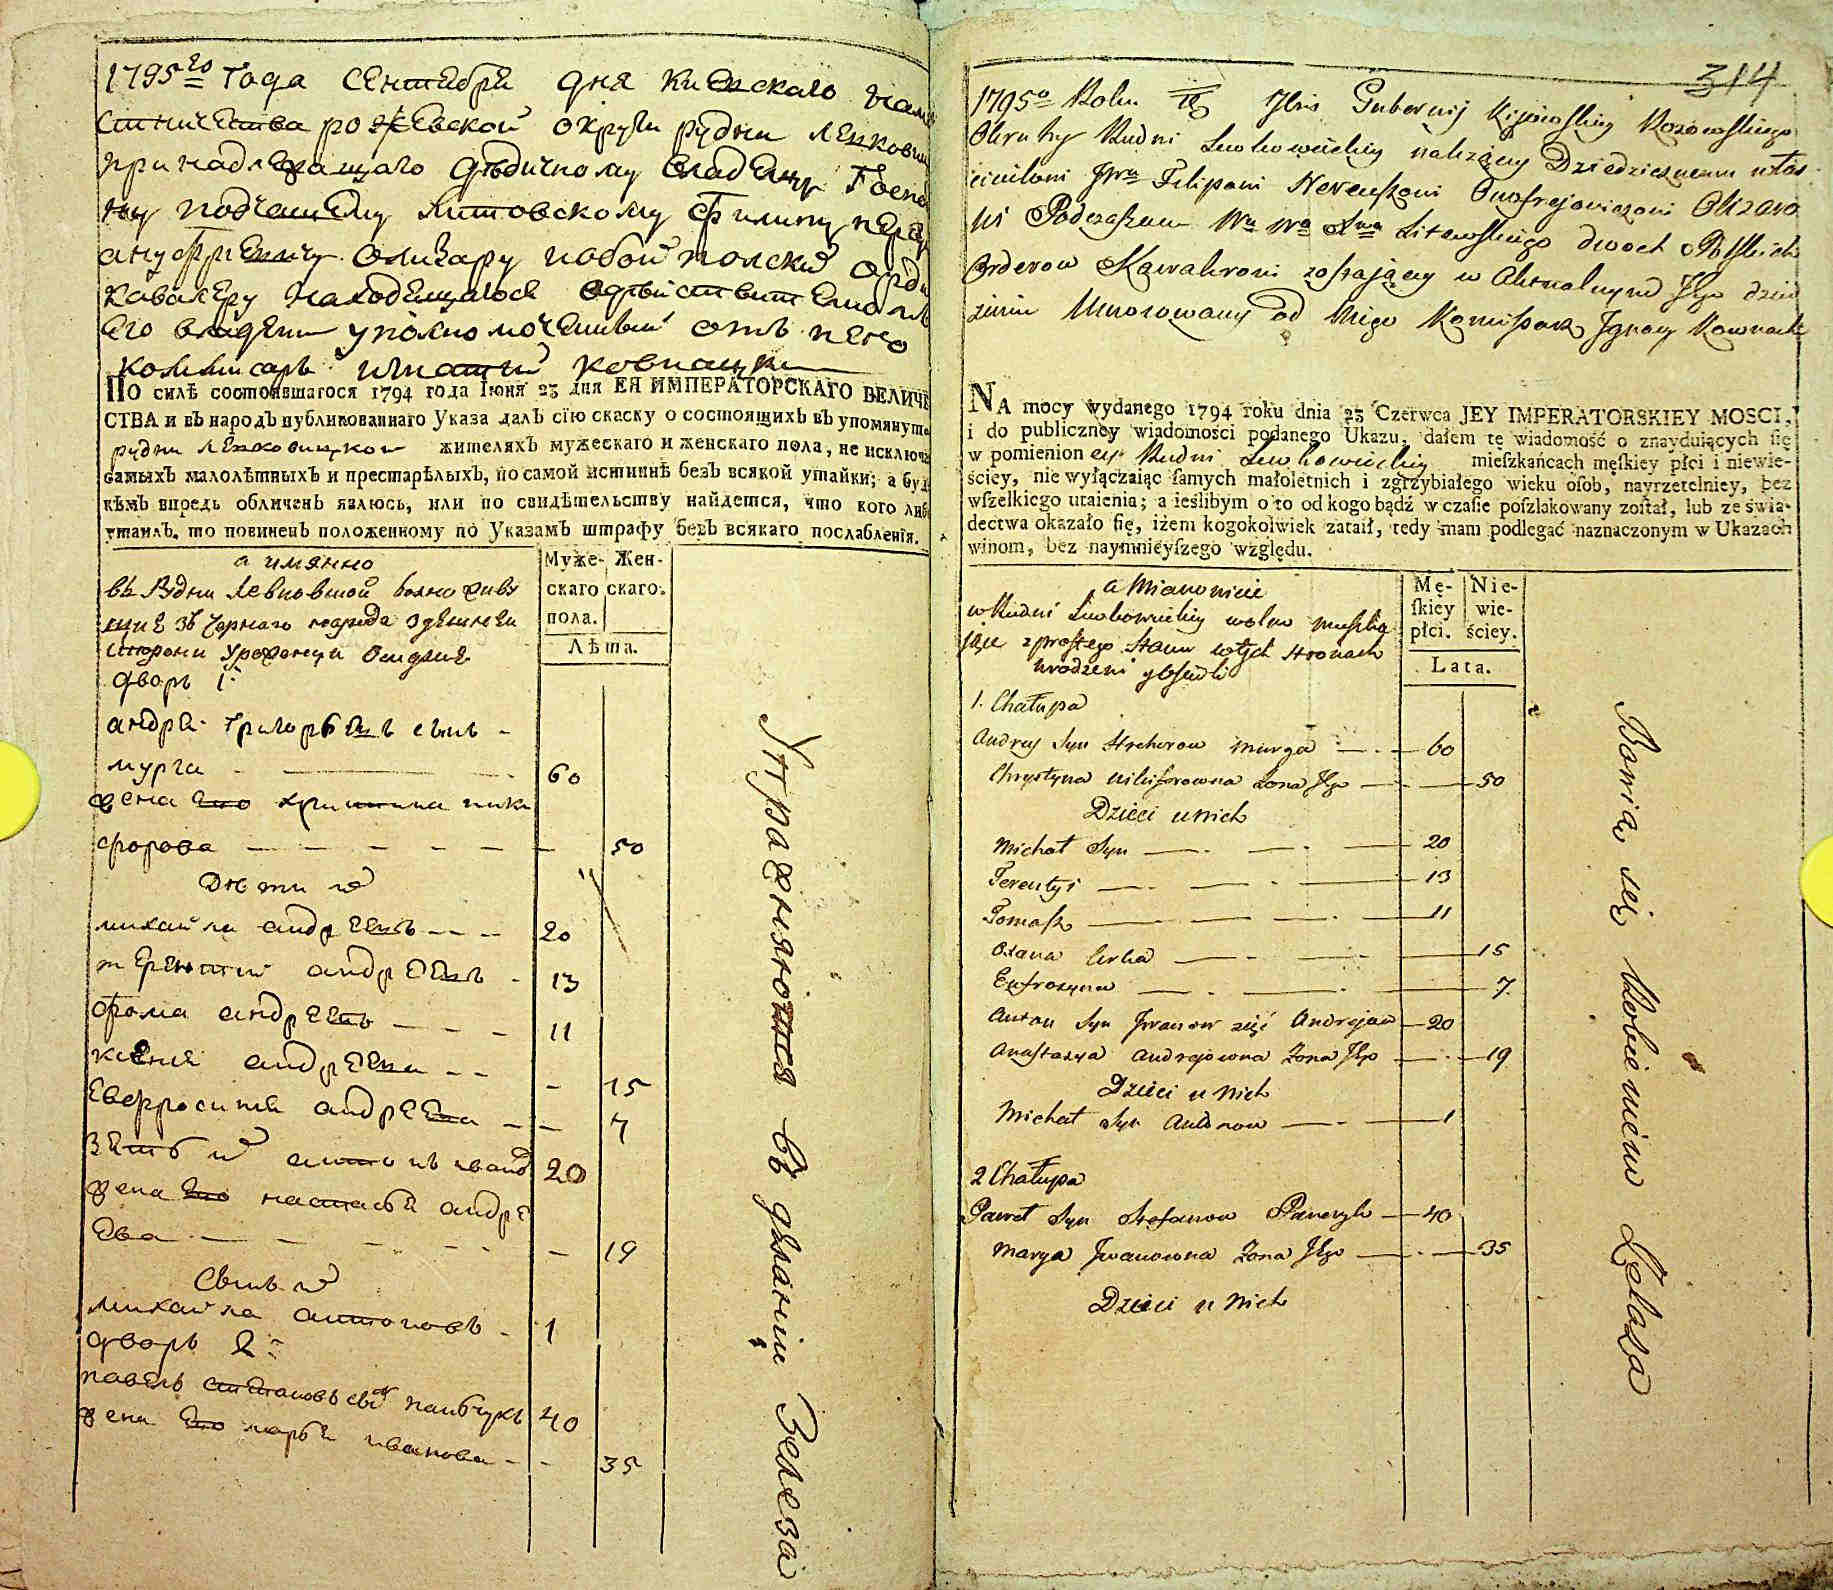 1795го года сентебре дня киевскаго наме
стничества рожевской округи рудни ленкови
принадлежащаго дѣдичному владенту
ну подчашему литовскому филипу нере
ануфриевичу олизару побой полски орде
кавалеру находещагосе
его владени уполномоченный отъ него
коммисаръ игнатий ковнацки
По силѣ состоявшагося 1794 года Іюня 23 дня ЕЯ ИМПЕРАТОРСКАГО ВЕЛИЧЕ
СТВА и въ народъ публикованнаго Указа далъ сію скаску о состоящихъ въ упомянут
рудни ленковицкой жителяхъ мужескаго и женскаго пола, не исключа
самыхъ малолѣтныхъ и престарѣлыхъ, по самой истиннѣ безъ всякой утайки; а буд
кѣмъ впредь обличенъ явлюсь, или по свидѣтельству найдется, что кого либо
утаилъ, то повиненъ положенному по Указамъ штрафу безъ всякаго послабленія.
а имянно
въ Рудни волно живу
щие зъ чернаго народа
стюрони уроженци
Муже- Жен-
скаго скаго.
пола.
Лѣта.
дворъ 1
андрей григорьевъ сынъ -
мурга 60
жена его христина ники
форова 50
Дѣти их
михайла андреевъ 20
терентий андреевъ 13
фома андреевъ 11
ксения андреева 15
евфросиния андреева 7
зеть их антонъ иванов 20
жена его настасья андре
ева 19
Сынъ их
михайла антоновъ 1
дворъ 2
павелъ степановъ сын панчукъ 40
жена его марья иванова 35
Упражняются въ дѣланіи Железа
314
1795o Roku Jbris Gubernij Kijowskiey Rozowskiego
Okruhy Rudni Lenkowieckiey należący Dziedzicznemu włas
cicielowi JPu Filipowi Nereuszowi Onofrejowiczowi Olizaro
wi Podczaszemu Litewskiego dwoch Polskich
Orderow Kawalerowi zostaiący w Aktualnym Jego dzied
zienie Umocowany od Niego Komissarz Jgnacy Kownacki
NA mocy wydanego 1794 roku dnia 23 Czerwca JEY IMPERATORSKIEY MOSCI,
i do publiczney wiadomości podanego Ukazu, dałem tę wiadomość o znayduiących ſię
w pomienioney Rudni Lenkowieckiey mieſzkańcach męſkiey płci i niewie-
ściey, nie wyłączaiąc ſamych małoletnich i zgrzybiałego wieku oſob, nayrzetelniey, bez
wſzelkiego utaienia; a ieślibym o to od kogo bądź w czaſie poſzlakowany zoſtał, lub ze świa-
dectwa okazało ſię, iżem kogokolwiek zataił, tedy mam podlegać naznaczonym w Ukazach
winom, bez naymnieyſzego względu.
a Mianowicie
w Rudni Lenkowieckiey wolno mieszka
jące z prostego Stanu w tych Stronach
urodzeni y osiedli
Mę- Nie-
ſkiey wie-
płci. ściey.
Lata.
1. Chałupa
Andrey Syn Hrehorow Murga 60
Chrystyna Nikiforowna Zona Jego 50
Dzieci u Nich
Michał Syn 20
Terentyi 13
Tomasz 11
Oxana Corka 15
Eufrozyna 7
Anton Syn Jwanow zięć Andrejow 20
Anastazya Andrejowna Zona Jego 19
Dzieci u Nich
Michał Syn Antonow 1
2 Chałupa
Paweł Syn Stefanow Panczyk 40
Marya Jwanowna Zona Jego 35
Dzieci u Nich
Bawią się Robieniem Żelaza